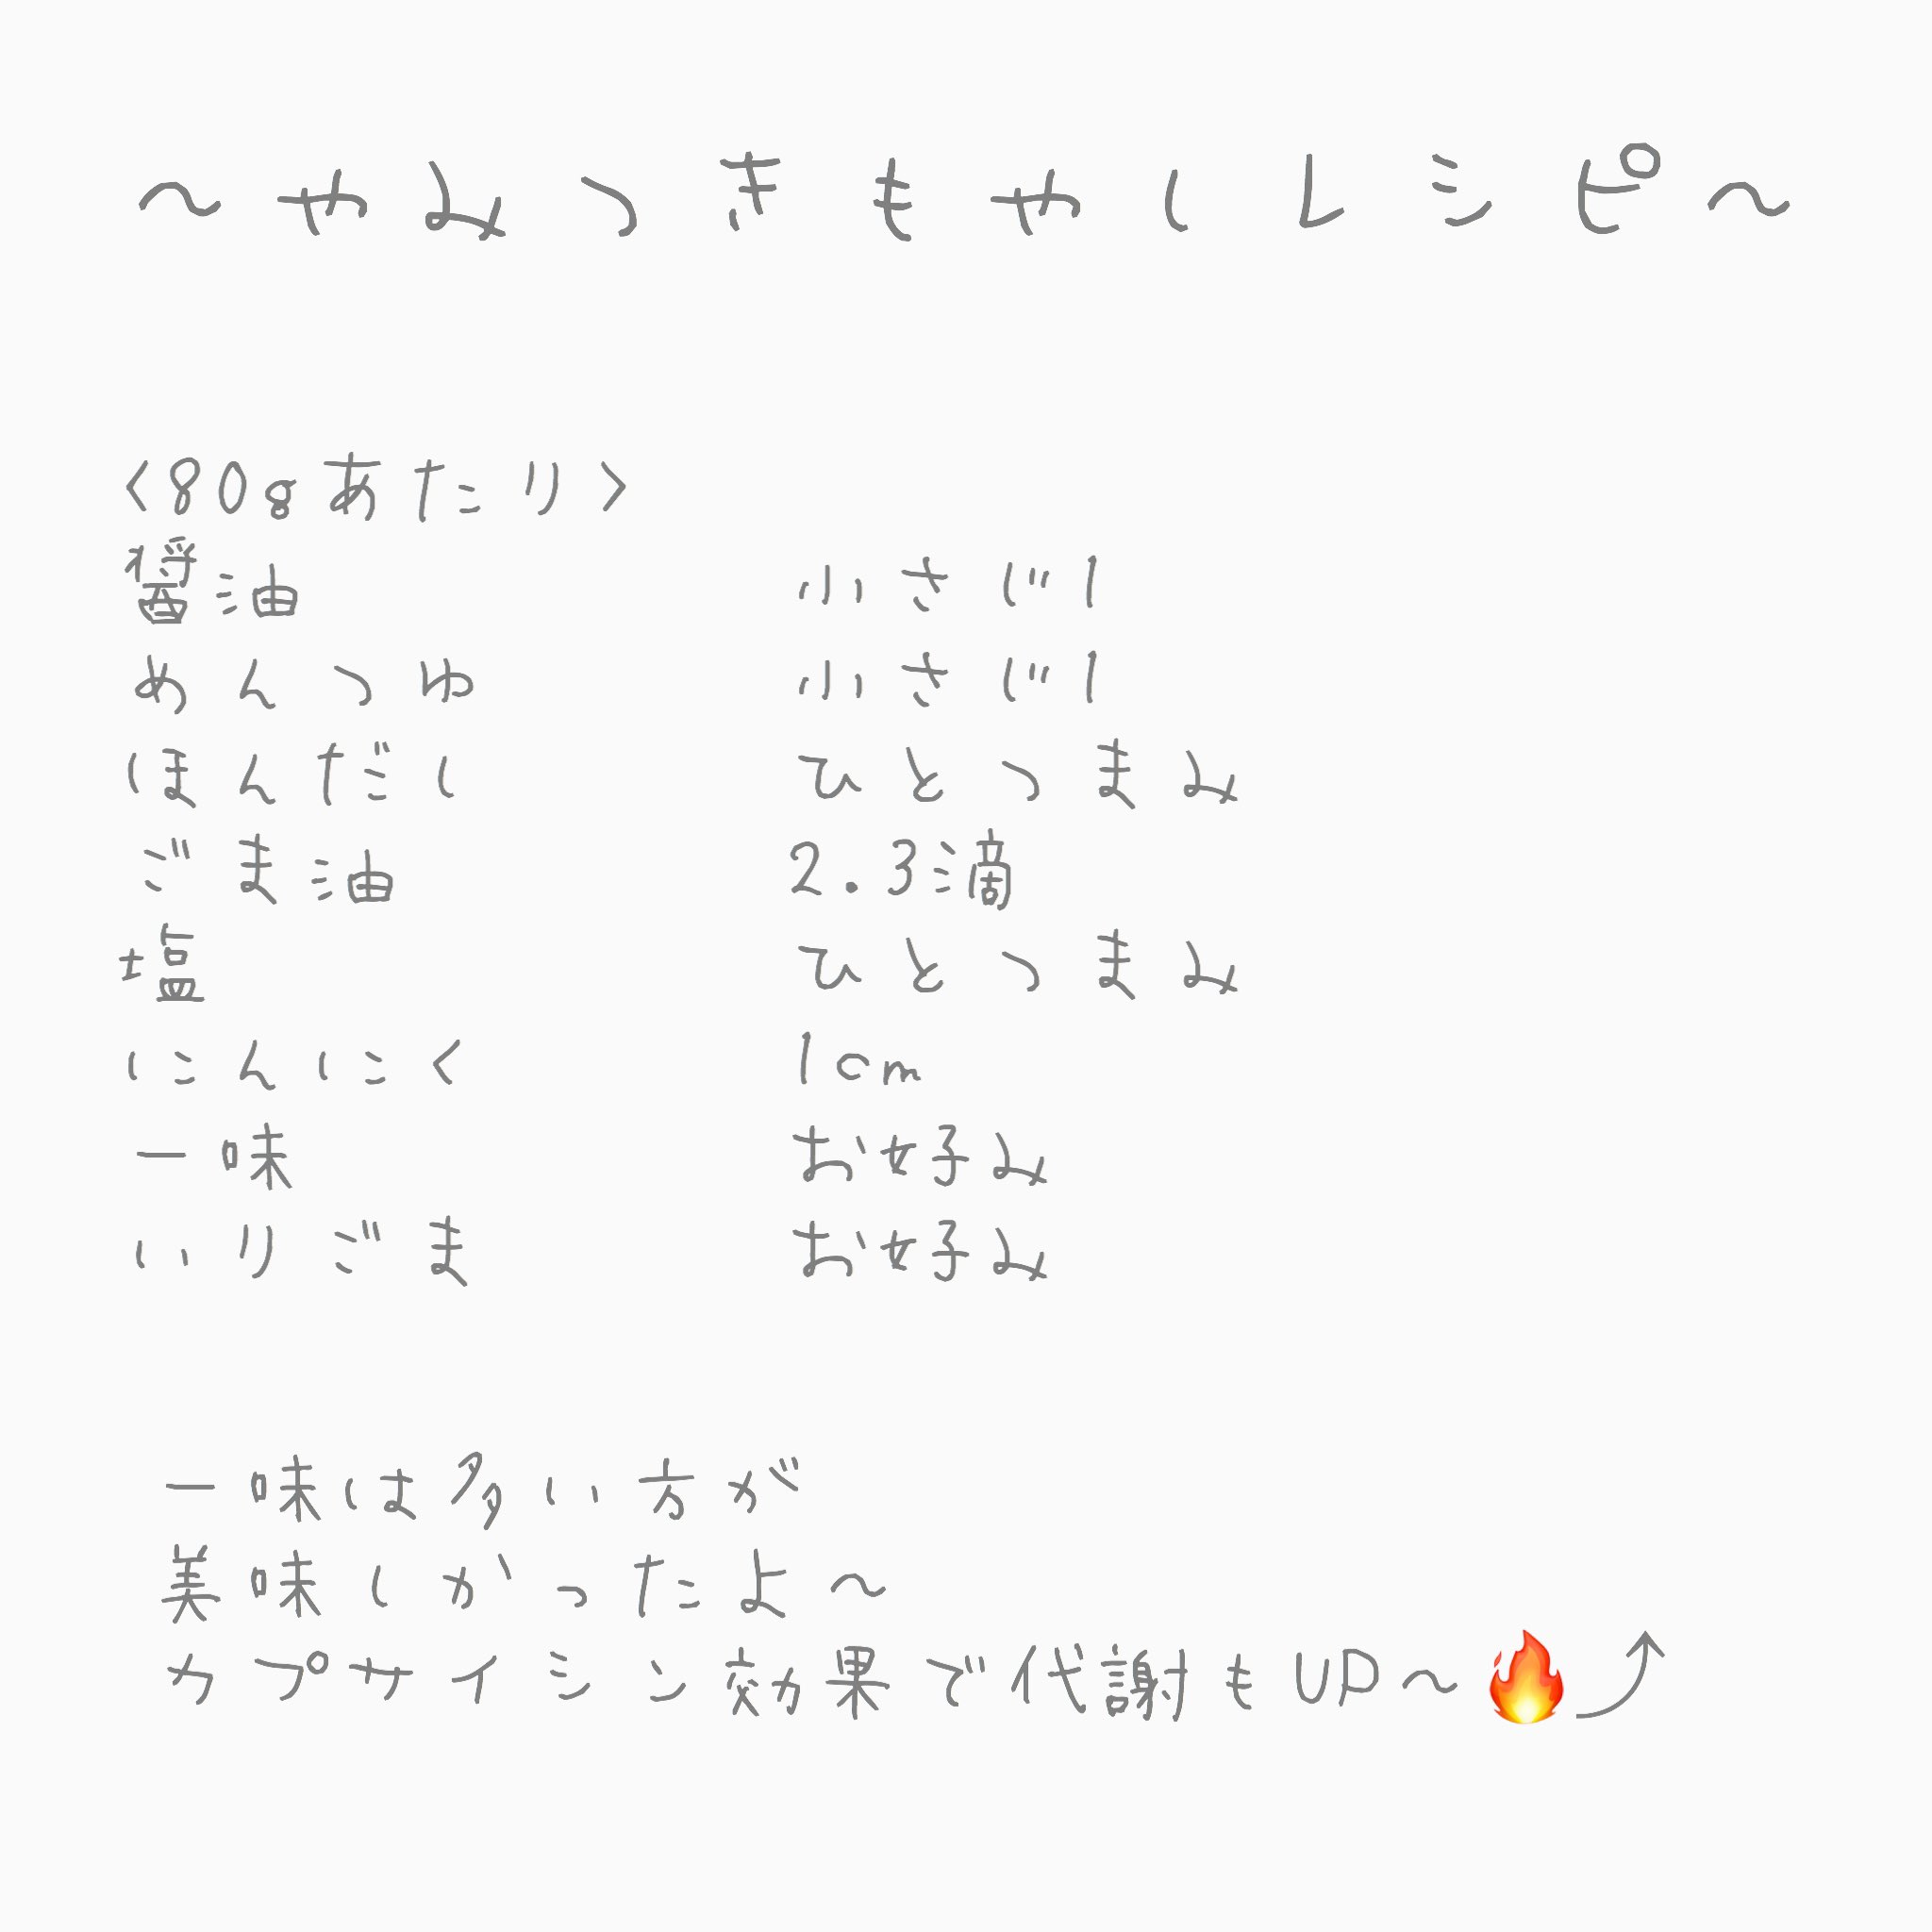 ～やみつきもやしレシピ～
<80gあたり>
醤油 小さじ1
めんつゆ 小さじ1
ほんだし ひとつまみ
ごま油 2.3滴
塩 ひとつまみ
にんにく 1cm
一味 お好み
いりごま お好み
一味は多い方が
美味しかったよ～
カプサイシン効果で代謝もUP～🔥⤴